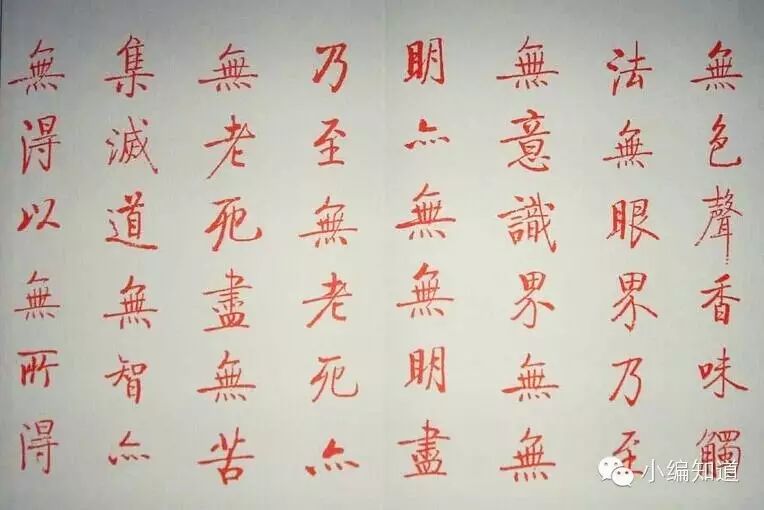 無色聲香味觸
法無眼界乃至
無意識界無無
明亦無無明盡
乃至無老死亦
無老死盡無苦
集滅道無智亦
無得以無所得
小编知道